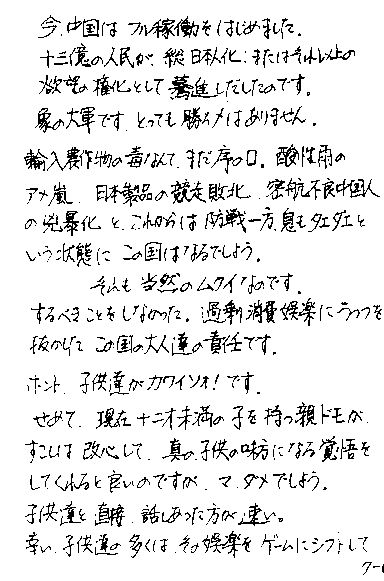 今、中国は フル稼働をはじめました。
十三億の人民が、総日本人化、またはそれ以上の
欲望の権化として驀進しだしたのです。
象の大軍です。とっても勝ちメはありません。
輸入農作物の毒なんて、まだ序の口。酸性雨の
アメ嵐、日本製品の競走敗北、密航不良中国人
の兇暴化、と、これからは防戦一方、息もタエダエと
いう状態に この国はなるでしょう。
それも 当然のムクイなのです。
するべきことをしなかった。過剰消費娯楽にうつつを
抜かして この国の大人達の責任です。
ホント、子供達がカワイソオ!です。
せめて、現在 十二才未満の子を持つ親ドモが、
すこしは 改心して、真の子供の味方になる覚悟を
してくれると良いのですが、マ、ダメでしょう。
子供達と直接、話しあった方が速い。
幸い、子供達の多くは、その娯楽を ゲームにシフトして
7-1